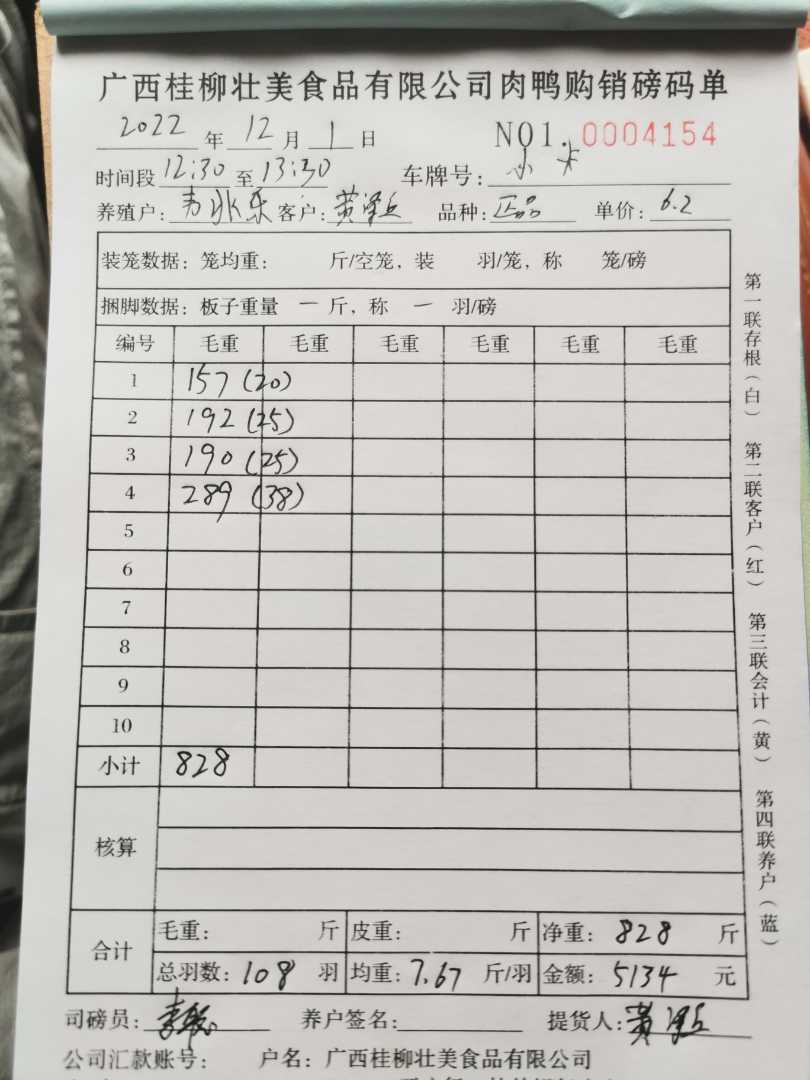 广西桂柳壮美食品有限公司肉鸭购销磅码单
2022 年 12 月 1 日 NO1. 0004154
时间段 12:30 至 13:30 车牌号: 小卡
养殖户: 韦兆乐 客户: 品种: 正品 单价: 6.2
装笼数据: 笼均重: 斤/空笼, 装 羽/笼, 称 笼/磅
捆脚数据: 板子重量 一 斤, 称 一 羽/磅
编号 毛重 毛重 毛重 毛重 毛重 毛重
1 157 (20)
2 192 (25)
3 190 (25)
4 289 (38)
5
6
7
8
9
10
小计 828
核算
合计 毛重: 斤 皮重: 斤 净重: 828 斤
总羽数: 108 羽 均重: 7.67 斤/羽 金额: 5134 元
司磅员: 养户签名: 提货人:
公司汇款账号: 户名: 广西桂柳壮美食品有限公司
第一联存根(白) 第二联客户(红) 第三联会计(黄) 第四联养户(蓝)